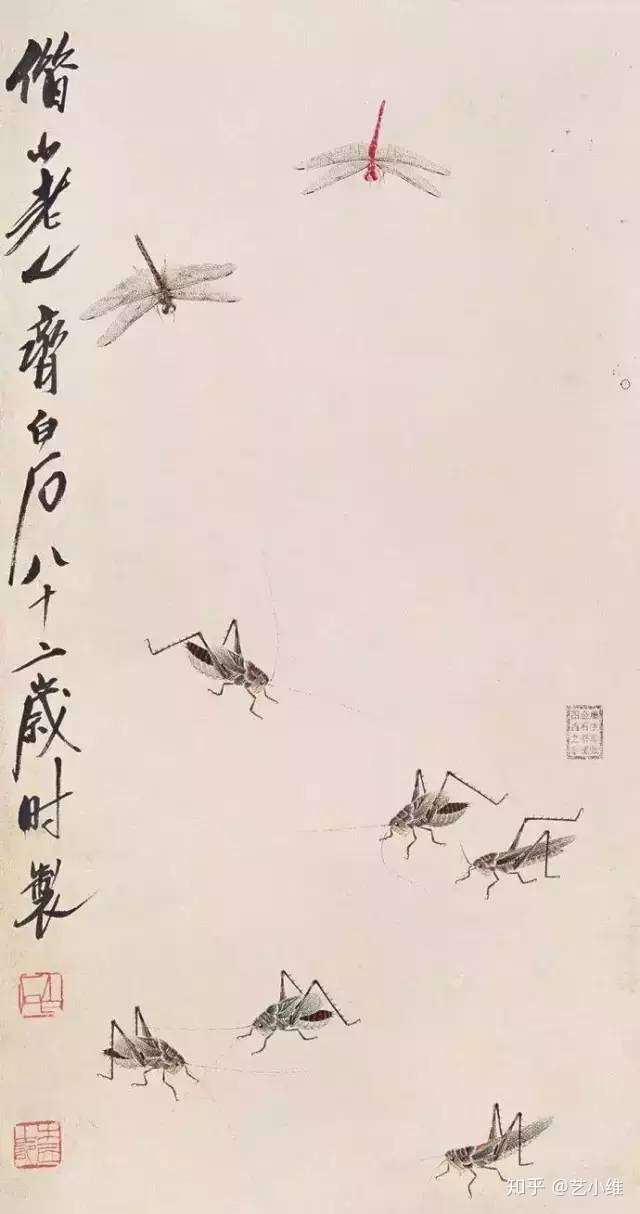 借山老人齊白石八十二歲时製
知乎 @艺小维